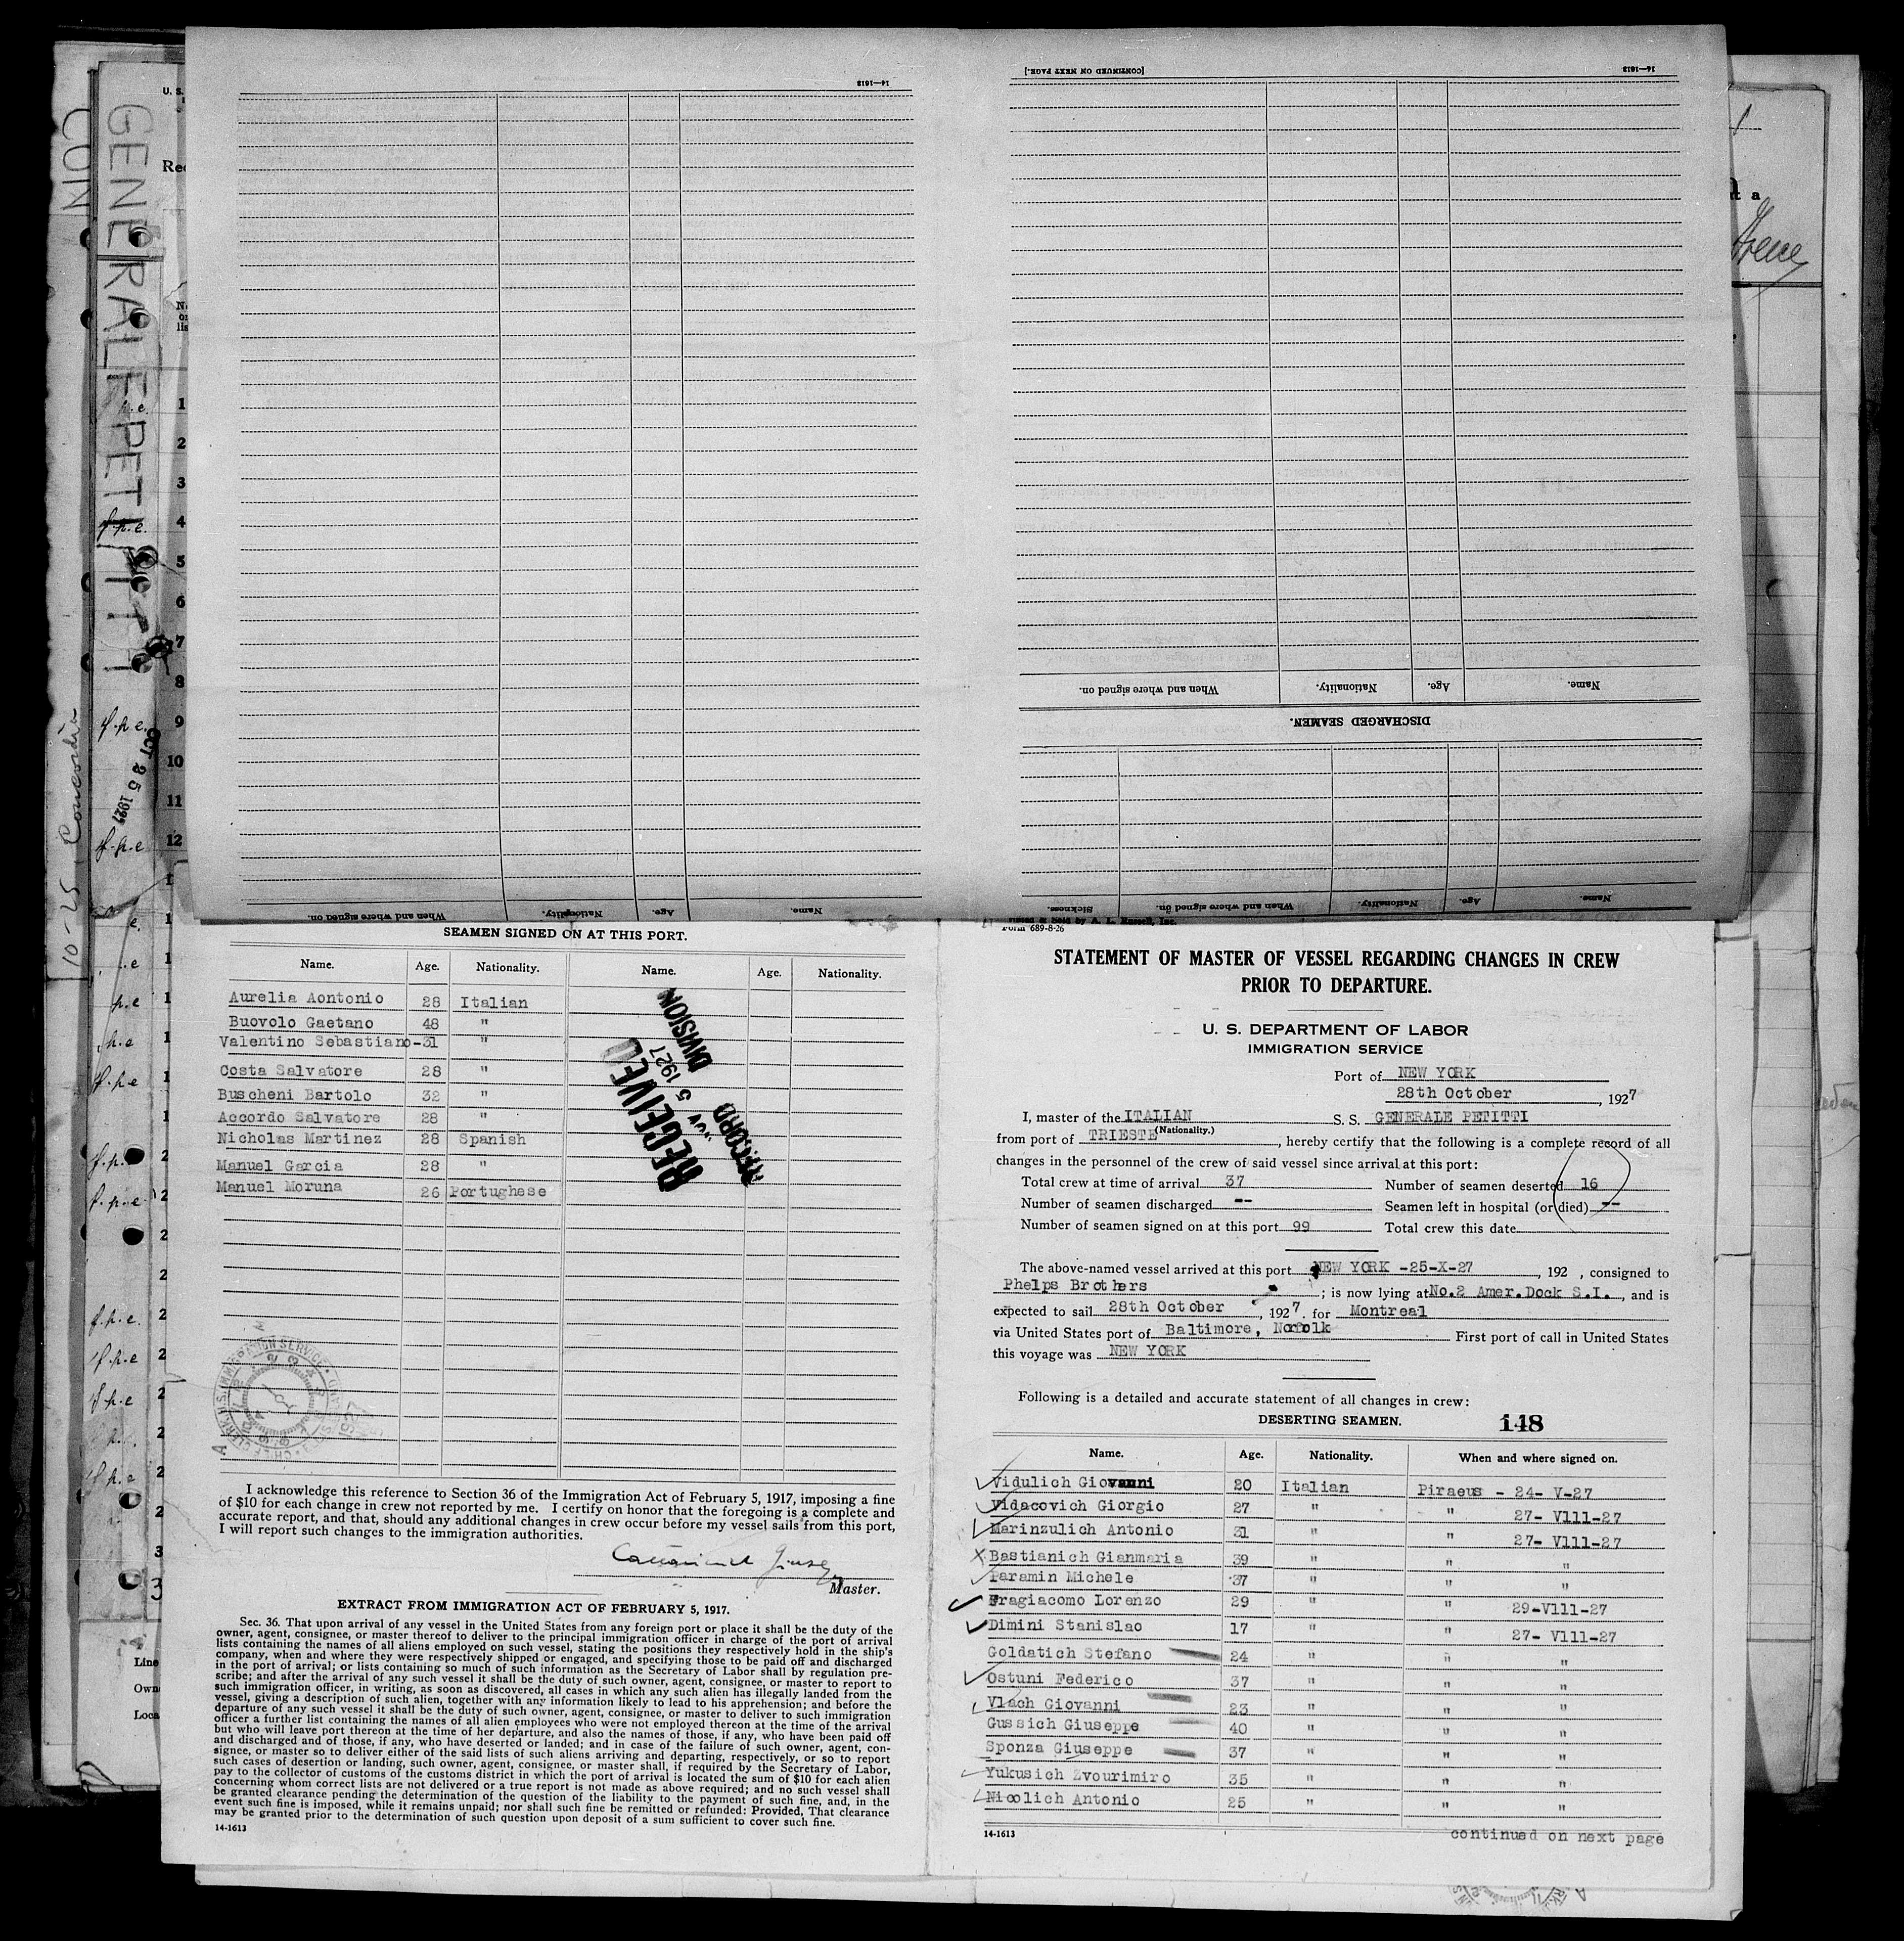 GENERALE PETITTI
10-25 Concordia
OCT 25 1927
14-1613
[CONTINUED ON NEXT PAGE.]
14-1613
When and where signed on. Nationality. Age. Name.
DISCHARGED SEAMEN.
Sickness. When and where signed on. Nationality. Age. Name.
When and where signed on. Nationality. Age. Name.
SEAMEN SIGNED ON AT THIS PORT.
Name. Age. Nationality. Name. Age. Nationality.
Aurelia Aontonio 28 Italian
Buovolo Gaetano 48 "
Valentino Sebastiano-31 "
Costa Salvatore 28 "
Buscheni Bartolo 32 "
Accordo Salvatore 28 "
Nicholas Martinez 28 Spanish
Manuel Garcia 28 "
Manuel Moruna 26 Portughese
RECEIVED
NOV 5 1927
RECORD DIVISION
I acknowledge this reference to Section 36 of the Immigration Act of February 5, 1917, imposing a fine
of $10 for each change in crew not reported by me. I certify on honor that the foregoing is a complete and
accurate report, and that, should any additional changes in crew occur before my vessel sails from this port,
I will report such changes to the immigration authorities.
Master.
EXTRACT FROM IMMIGRATION ACT OF FEBRUARY 5, 1917.
Sec. 36. That upon arrival of any vessel in the United States from any foreign port or place it shall be the duty of the
owner, agent, consignee, or master thereof to deliver to the principal immigration officer in charge of the port of arrival
lists containing the names of all aliens employed on such vessel, stating the positions they respectively hold in the ship's
company, when and where they were respectively shipped or engaged, and specifying those to be paid off and discharged
in the port of arrival; or lists containing so much of such information as the Secretary of Labor shall by regulation pre-
scribe; and after the arrival of any such vessel it shall be the duty of such owner, agent, consignee, or master to report to
such immigration officer, in writing, as soon as discovered, all cases in which any such alien has illegally landed from the
vessel, giving a description of such alien, together with any information likely to lead to his apprehension; and before the
departure of any such vessel it shall be the duty of such owner, agent, consignee, or master to deliver to such immigration
officer a further list containing the names of all alien employees who were not employed thereon at the time of the arrival
but who will leave port thereon at the time of her departure, and also the names of those, if any, who have been paid off
and discharged and of those, if any, who have deserted or landed; and in case of the failure of such owner, agent, con-
signee, or master so to deliver either of the said lists of such aliens arriving and departing, respectively, or so to report
such cases of desertion or landing, such owner, agent, consignee, or master shall, if required by the Secretary of Labor,
pay to the collector of customs of the customs district in which the port of arrival is located the sum of $10 for each alien
concerning whom correct lists are not delivered or a true report is not made as above required; and no such vessel shall
be granted clearance pending the determination of the question of the liability to the payment of such fine, and, in the
event such fine is imposed, while it remains unpaid; nor shall such fine be remitted or refunded: Provided, That clearance
may be granted prior to the determination of such question upon deposit of a sum sufficient to cover such fine.
14-1613
& Sold by A. L. Russell, Inc.
Form 689-8-26
STATEMENT OF MASTER OF VESSEL REGARDING CHANGES IN CREW
PRIOR TO DEPARTURE.
U. S. DEPARTMENT OF LABOR
IMMIGRATION SERVICE
Port of NEW YORK
28th October, 1927
I, master of the ITALIAN S. S. GENERALE PETITTI
(Nationality.)
from port of TRIESTE, hereby certify that the following is a complete record of all
changes in the personnel of the crew of said vessel since arrival at this port:
Total crew at time of arrival 37 Number of seamen deserted 16
Number of seamen discharged -- Seamen left in hospital (or died) --
Number of seamen signed on at this port 99 Total crew this date
The above-named vessel arrived at this port NEW YORK -25-X-27, 192 , consigned to
Phelps Brothers; is now lying at No.2 Amer.Dock S.I., and is
expected to sail 28th October, 1927. for Montreal
via United States port of Baltimore, Norfolk First port of call in United States
this voyage was NEW YORK
Following is a detailed and accurate statement of all changes in crew:
DESERTING SEAMEN. 148
Name. Age. Nationality. When and where signed on.
Vidulich Giovanni 20 Italian Piraeus - 24- V-27
Vidacovich Giorgio 27 " " 27- V111-27
Marinzulich Antonio 31 " 27- V111-27
Bastianich Gianmaria 39 " " "
Taramin Michele 37 " " "
Fragiacomo Lorenzo 29 " " 29-V111-27
Dimini Stanislao 17 " " 27- V111-27
Goldatich Stefano 24 " " "
Ostuni Federico 37 " " "
Vlach Giovanni 23 " " "
Gussich Giuseppe 40 " " "
Sponza Giuseppe 37 " " "
Yukusich Zvourimiro 35 " " "
Nicolich Antonio 25 " " "
14-1613
continued on next page